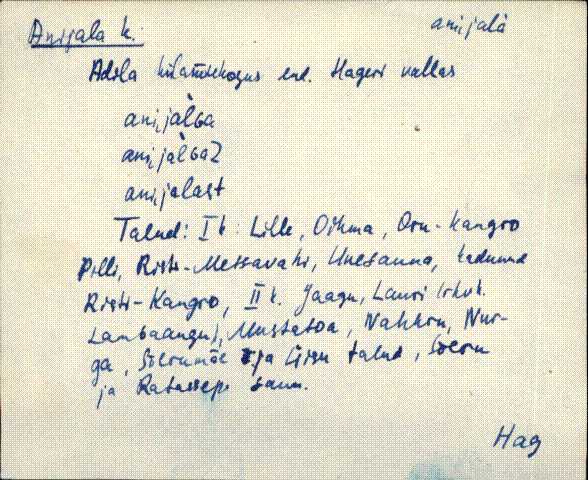 Anijala k. anijalà
Adila külanõukogus end. Hageri vallas
ani,jàlɢa
ani,jàlɢaZ
ani,jalast
Talud: I k: Lille, Oihma, Oru-Kangro
Pilli, Risti-Metsavahi, Uuesauna, kadunud
Risti-Kangro, II k. Jaagu, Lauri (rhvk.
Lambaaugu), Mustatoa, Nahkru, Nur-
ga, Sõerumäe ja Liisu talud, Sõeru
ja Ratassepa saun.
Hag